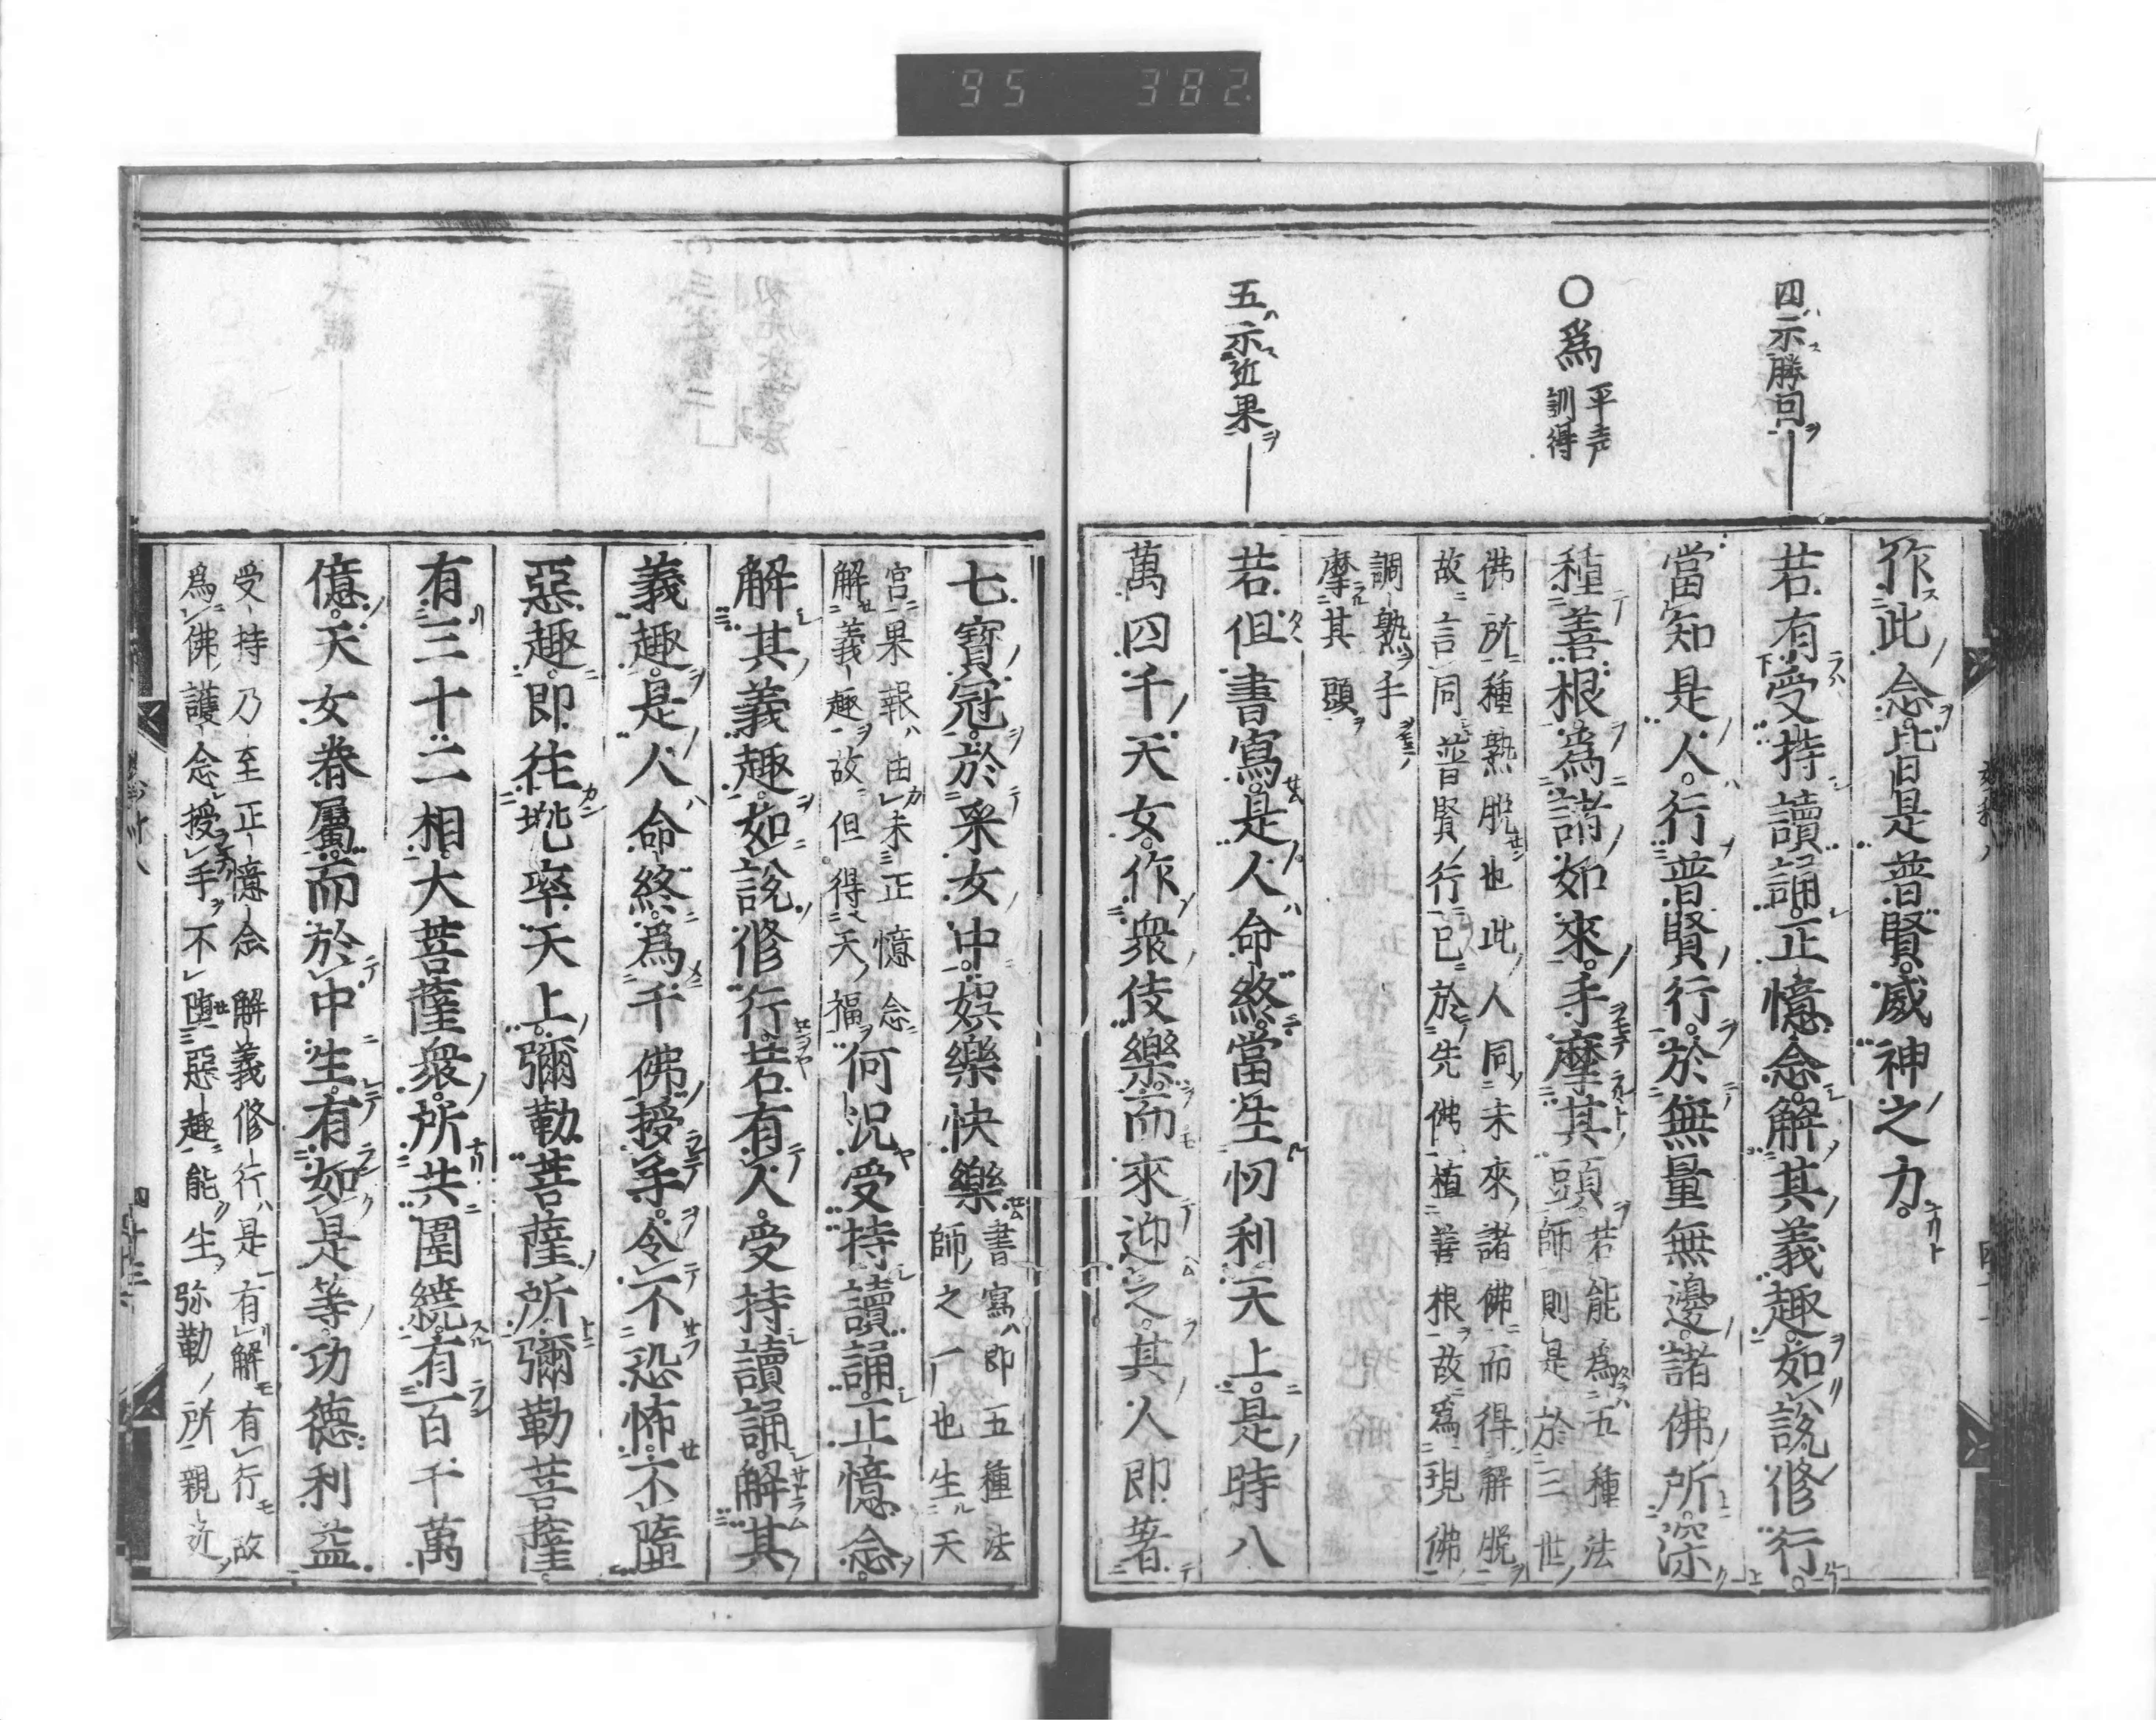 95 382
四示勝因
〇爲 平声 訓得
五示近果
作此念。皆是普賢。威神之力。
若有受持讀誦。正憶念。解其義趣。如說修行。
當知是人。行普賢行。於無量無邊。諸佛所。深
種善根。爲諸如來。手摩其頭。
若能爲五種法
師則是於三世
佛所種熟脫也此人同未來諸佛而得解脫
故言同普賢行已於先佛植善根故爲現佛
調熟手
摩其頭
若但書寫。是人命終。當生忉利天上。是時八
萬四千天女。作衆伎樂。而來迎之。其人即著
七寶冠。於采女中。娛樂快樂。
書寫即五種法
師之一也生天
宮果報由未正憶念
解義趣故但得天福
何況受持讀誦。正憶念。
解其義趣。如說修行。若有人。受持讀誦。解其
義趣。是人命終。爲千佛授手。令不恐怖。不墮
惡趣。即往兜率天上。彌勒菩薩所。彌勒菩薩。
有三十二相。大菩薩衆。所共圍繞。有百千萬
億。天女眷屬。而於中生。有如是等功德利益
受持乃至正憶念解義修行是有解有行故
爲佛護念授手不墮惡趣能生弥勒所親近